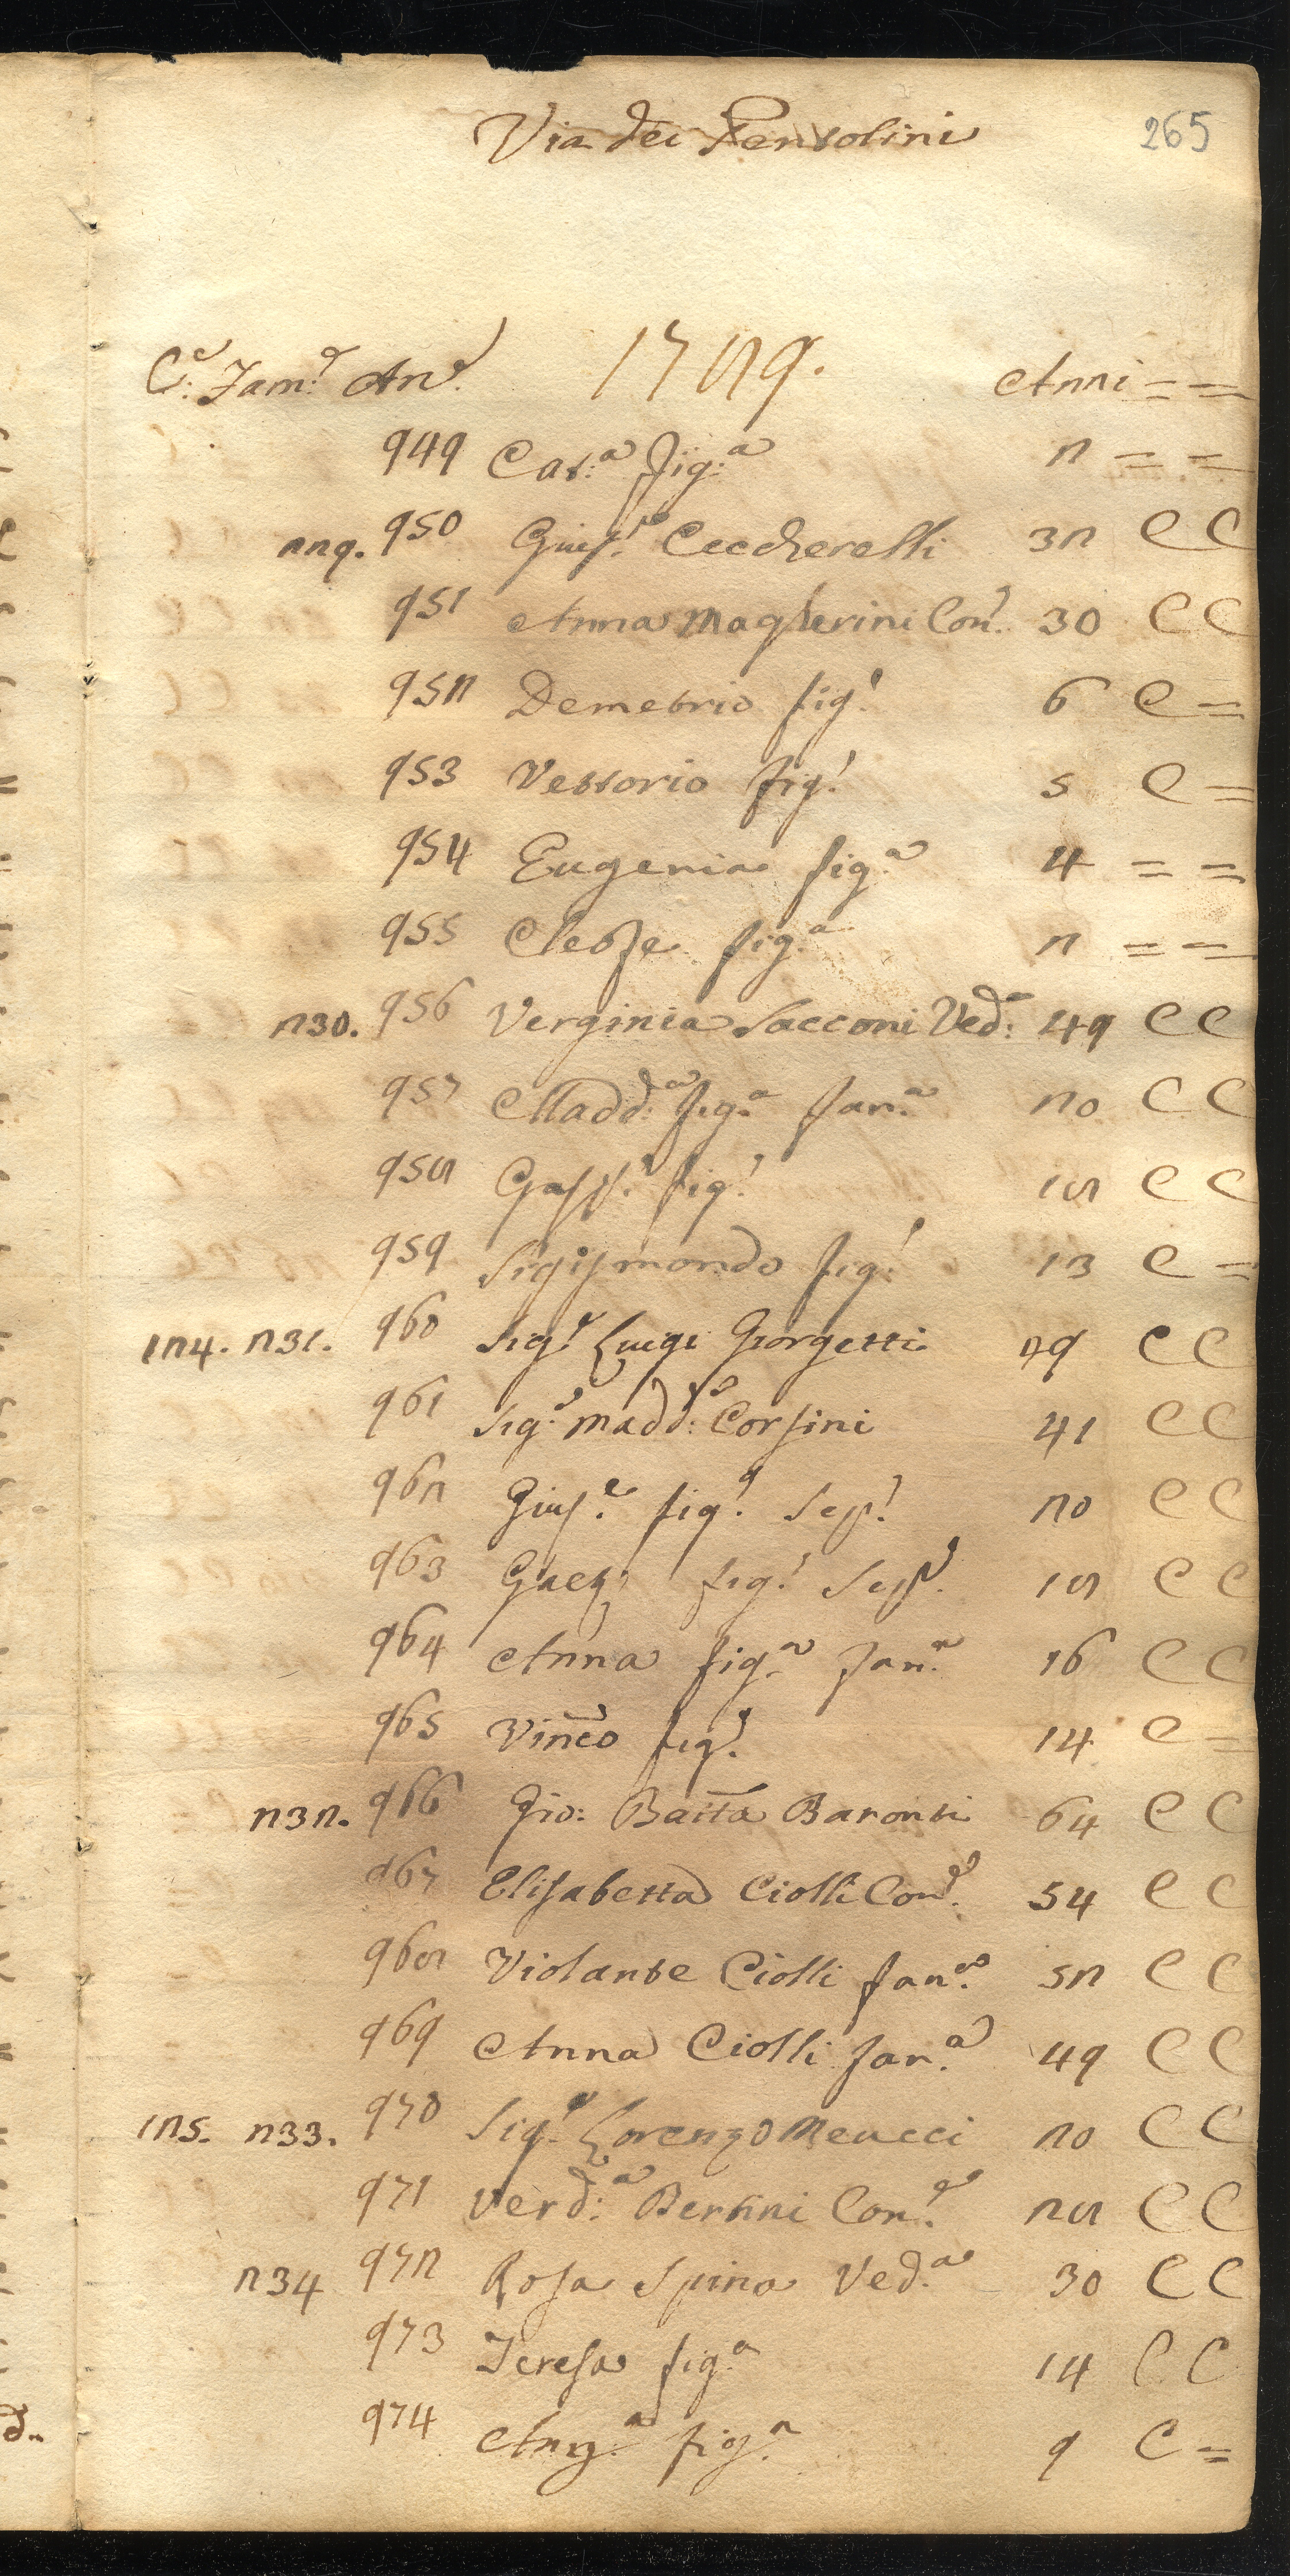 Via dei Pentolini 265
C.e Fam.e An.e 1789. Anni = =
949 Cat:a fig:a 2 = =
229. 950 Gius.e Ceccherelli 32 C C
951 Anna Magherini Con.e 30 C C
952 Demetrio fig.o 6 C =
953 Vettorio fig.o 5 C =
954 Eugenia fig.a 4 = =
955 Cleofe fig.a 2 = =
230. 956 Verginia Sacconi Ved:a 49 C C
957 Madd:a fig.a fan.a 20 C C
958 Gasp.e fig.o 18 C C
959 Sigismondo fig.o 13 C =
124. 231. 960 Sig.e Luigi Giorgetti 79 C C
961 Sig.a Madd:a Corsini 41 C C
962 Gius.e fig.o Sco.o 20 C C
963 Gaet.o fig.o Sco.o 18 C C
964 Anna fig.a fan.a 16 C C
965 Vinc̃o fig.o 14 C =
232. 966 Gio: Batt̃a Baronti 64 C C
967 Elisabetta Ciolli Con.e 54 C C
968 Violante Ciolli fan.a 52 C C
969 Anna Ciolli fan.a 49 C C
125. 233. 970 Sig.e Lorenzo Meucci 20 C C
971 Verd:a Bertini Con.e 28 C C
234 972 Rosa Spina Ved.a 30 C C
973 Teresa fig.a 14 C C
974 Ang.a fig.a 9 C =